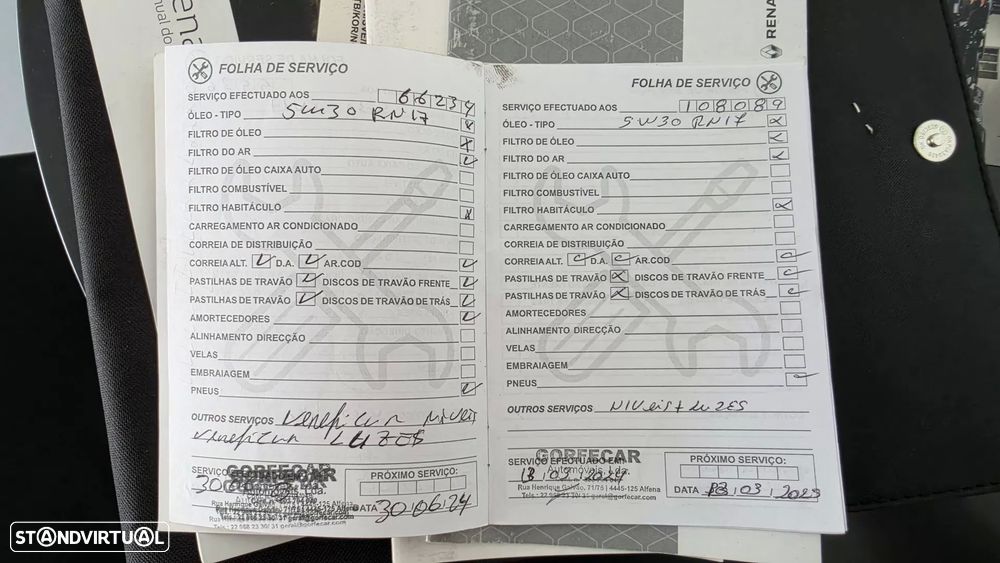 FOLHA DE SERVIÇO
SERVIÇO EFECTUADO AOS 66234
ÓLEO - TIPO 5W30 RN17 x
FILTRO DE ÓLEO x
FILTRO DO AR
FILTRO DE ÓLEO CAIXA AUTO
FILTRO COMBUSTÍVEL
FILTRO HABITÁCULO x
CARREGAMENTO AR CONDICIONADO
CORREIA DE DISTRIBUIÇÃO
CORREIA ALT. D.A. AR.COD
PASTILHAS DE TRAVÃO DISCOS DE TRAVÃO FRENTE
PASTILHAS DE TRAVÃO DISCOS DE TRAVÃO DE TRÁS
AMORTECEDORES
ALINHAMENTO DIRECÇÃO
VELAS
EMBRAIAGEM
PNEUS
OUTROS SERVIÇOS
LUZES
SERVIÇO
GORFECAR
Automóveis, Lda.
PRÓXIMO SERVIÇO:
DATA 30.06.24
FOLHA DE SERVIÇO
SERVIÇO EFECTUADO AOS 108089
ÓLEO - TIPO 5W30 RN17 x
FILTRO DE ÓLEO
FILTRO DO AR
FILTRO DE ÓLEO CAIXA AUTO
FILTRO COMBUSTÍVEL
FILTRO HABITÁCULO x
CARREGAMENTO AR CONDICIONADO
CORREIA DE DISTRIBUIÇÃO
CORREIA ALT. D.A. AR.COD
PASTILHAS DE TRAVÃO x DISCOS DE TRAVÃO FRENTE
PASTILHAS DE TRAVÃO x DISCOS DE TRAVÃO DE TRÁS
AMORTECEDORES
ALINHAMENTO DIRECÇÃO
VELAS
EMBRAIAGEM
PNEUS
OUTROS SERVIÇOS
SERVIÇO EFECTUADO EM:
GORFECAR
Automóveis, Lda.
Rua Henrique Galvão, 71/75 | 4445-125 Alfena
PRÓXIMO SERVIÇO:
DATA
RENA
STANDVIRTUAL